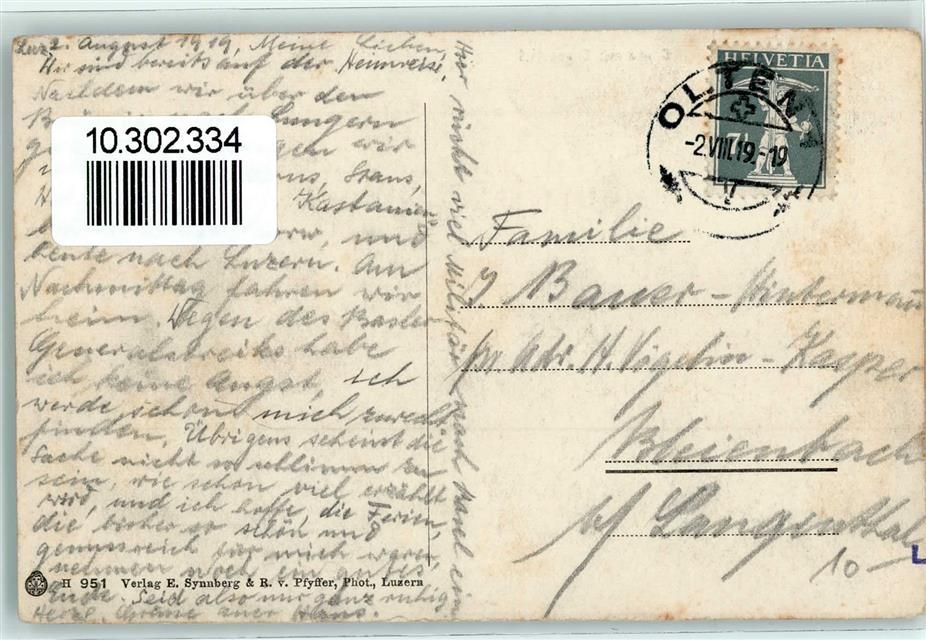 Luz. 2. August 1919. Meine Lieben,
Wir sind bereits auf der Heimreise,
Nachdem wir über den
nach Lungern
wir
Kastanien
und
heute nach Luzern. Am
Nachmittag fahren wir
heim. Wegen des Basler
Generalstreiks habe
ich keine Angst, ich
werde schon mich zurecht
finden. Übrigens scheint die
Sache nicht so schlimm zu
sein, wie schon viel erzählt
wird, und ich hoffe, die Ferien,
die bisher so schön und
genussreich für mich waren,
nehmen noch ein gutes
Ende. Seid also nur ganz ruhig
Herzl. Grüsse euer Hans.
Hier rückt viel Militär nach Basel ein
10.302.334
HELVETIA
7½
OLTEN
-2.VIII.19.-19
Familie
Bauer-Hintermann
pr. Adr. H. Vigelin-Kasper
Bleienbach
b/ Langenthal
10-
H 951 Verlag E. Synnberg & R. v. Pfyffer, Phot., Luzern